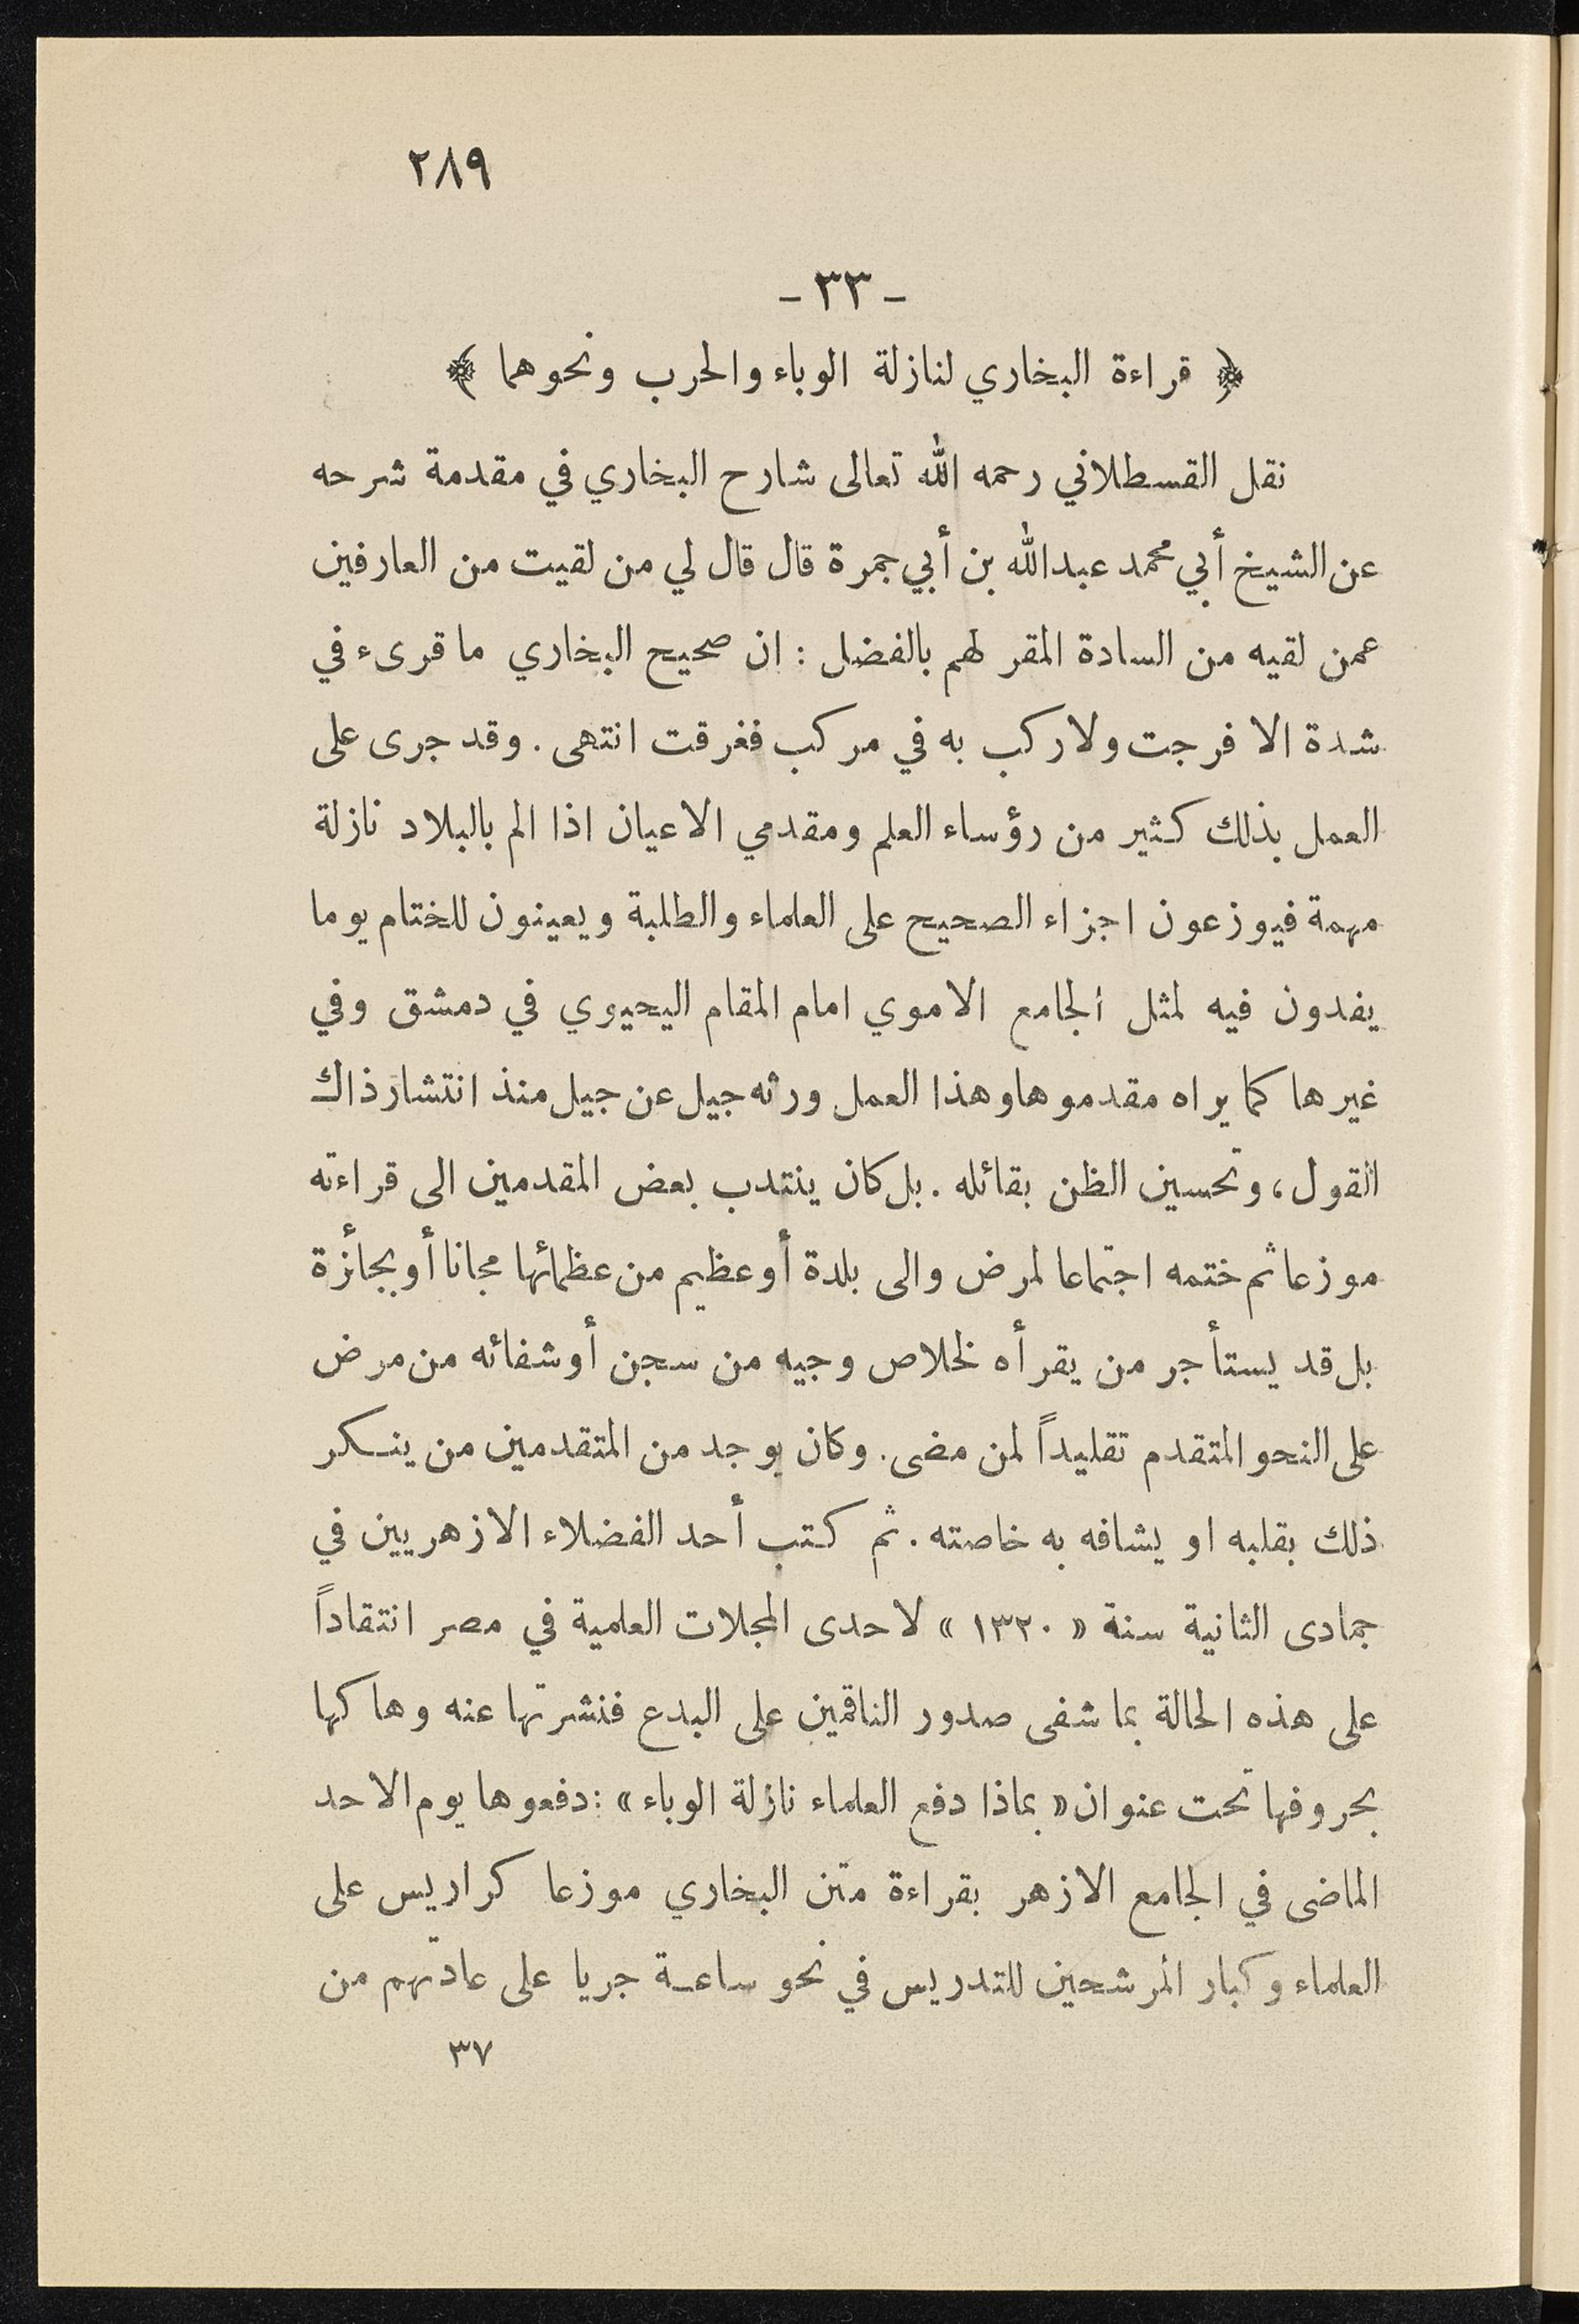 ٢٨٩
- ٣٣ -
﴿ قراءة البخاري لنازلة الوباء والحرب ونحوهما ﴾
نقل القسطلاني رحمه الله تعالى شارح البخاري في مقدمة شرحه
عن الشيخ أبي محمد عبدالله بن أبي جمرة قال قال لي من لقيت من العارفين
عمن لقيه من السادة المقر لهم بالفضل : ان صحيح البخاري ما قرىء في
شدة الا فرجت ولا ركب به في مركب فغرقت انتهى . وقد جرى على
العمل بذلك كثير من رؤساء العلم ومقدمي الاعيان اذا الم بالبلاد نازلة
مهمة فيوزعون اجزاء الصحيح على العلماء والطلبة ويعينون للختام يوما
يفدون فيه لمثل الجامع الاموي امام المقام اليحيوي في دمشق وفي
غيرها كما يراه مقدموها وهذا العمل ورثه جيل عن جيل منذ انتشار ذاك
القول ، وتحسين الظن بقائله . بل كان ينتدب بعض المقدمين الى قراءته
موزعا ثم ختمه اجتماعا لمرض والى بلدة أو عظيم من عظمائها مجانا أو بجائزة
بل قد يستأجر من يقرأه لخلاص وجيه من سجن أو شفائه من مرض
على النحو المتقدم تقليداً لمن مضى . وكان يوجد من المتقدمين من ينكر
ذلك بقلبه او يشافه به خاصته . ثم كتب أحد الفضلاء الازهريين في
جمادى الثانية سنة « ١٣٢٠ » لاحدى المجلات العلمية في مصر انتقاداً
على هذه الحالة بما شفى صدور الناقمين على البدع فنشرتها عنه وهاكها
بحروفها تحت عنوان « بماذا دفع العلماء نازلة الوباء » : دفعوها يوم الاحد
الماضى في الجامع الازهر بقراءة متن البخاري موزعا كراريس على
العلماء وكبار المرشحين للتدريس في نحو ساعة جريا على عادتهم من
٣٧